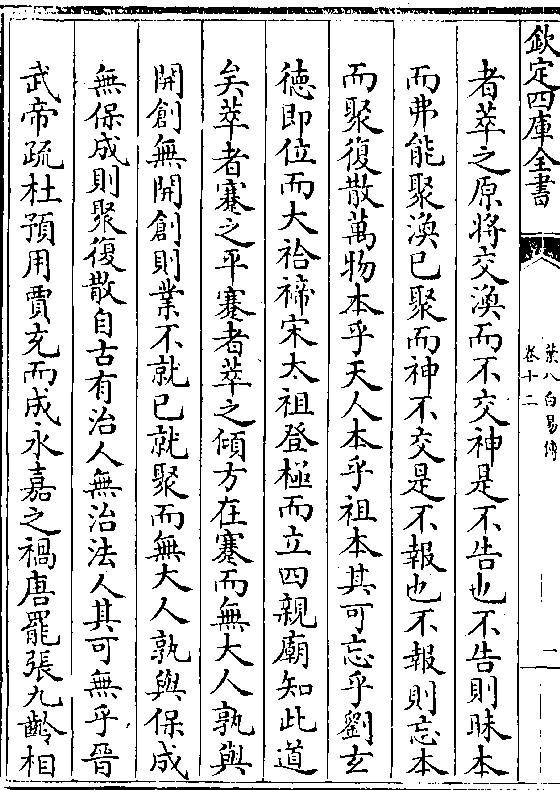 欽定四庫全書
葉八白易傳
卷十二
一
者萃之原將交渙而不交神是不告也不告則昧本
而弗能聚渙已聚而神不交是不報也不報則忘本
而聚復散萬物本乎天人本乎祖本其可忘乎劉玄
徳即位而大祫禘宋太祖登極而立四親廟知此道
矣萃者蹇之平蹇者萃之傾方在蹇而無大人孰與
開創無開創則業不就已就聚而無大人孰與保成
無保成則聚復散自古有治人無治法人其可無乎晉
武帝疏杜預用賈充而成永嘉之禍唐罷張九齡相